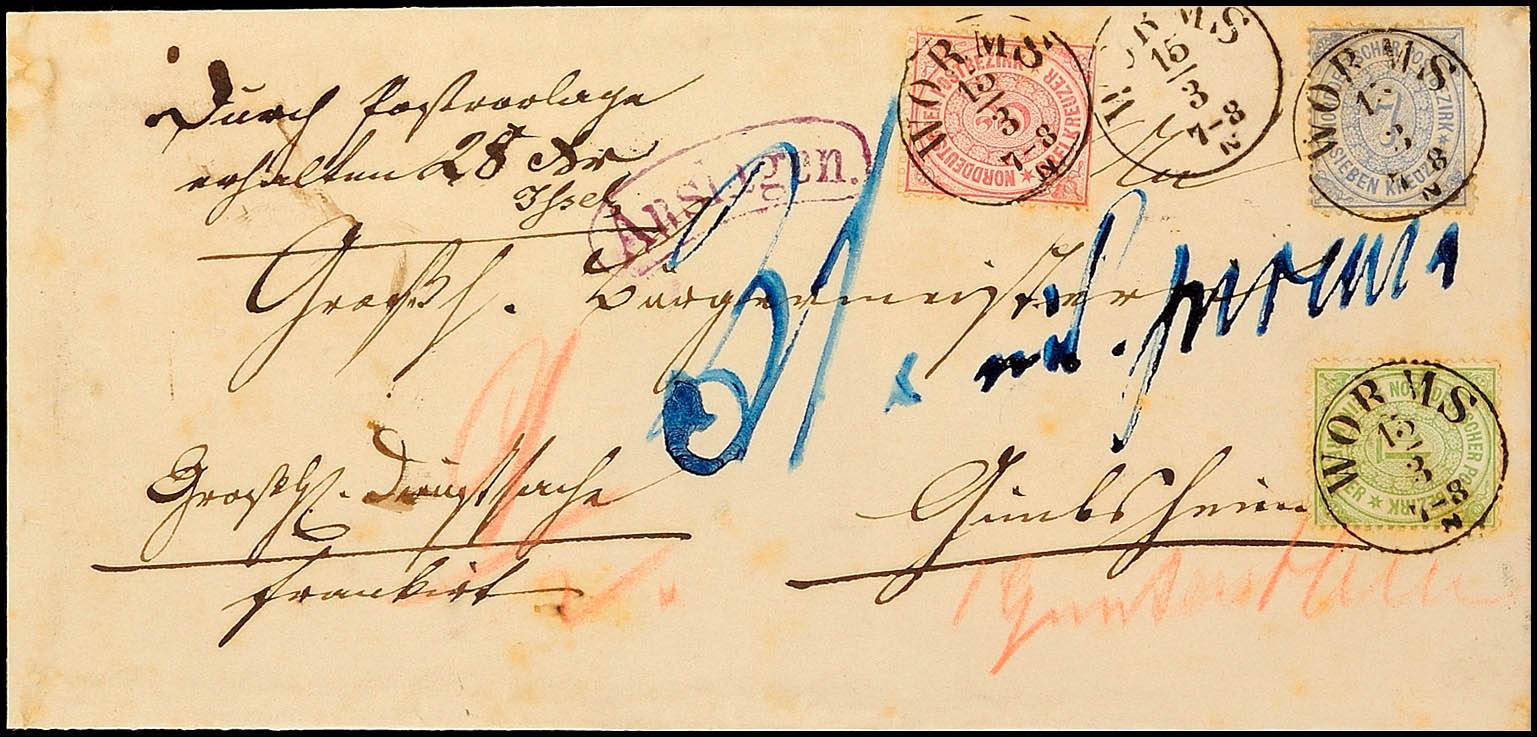 Durch Postvorlage
erhalten 28 Xr
Auslagen.
Großh. Bürgermeisterei
31
Großh. Dienstsache
frankirt
Gimbsheim
Guntersblum
NORDDEUTSCHER POSTBEZIRK
KREUZER
WORMS
15/3
7-8
N
WORMS
15/3
7-8
N
NORDDEUTSCHER POSTBEZIRK
7
SIEBEN KREUZER
WORMS
3
7-8
N
NORDDEUTSCHER POSTBEZIRK
1
WORMS
15/3
7-8
N